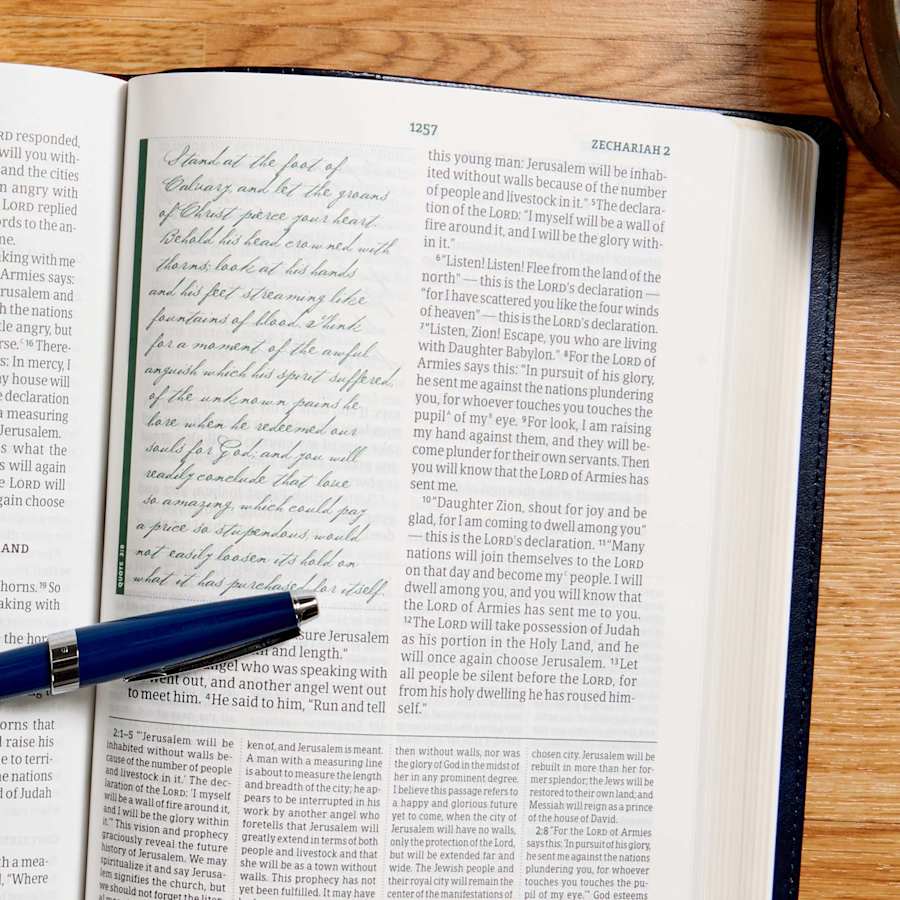 RD responded,
will you with-
and the cities
n angry with
LORD replied
ords to the an-
me.
king with me
Armies says:
rusalem and
h the nations
tle angry, but
rse.ᶜ ¹⁶There-
s: In mercy, I
y house will
e declaration
a measuring
Jerusalem.
s what the
s will again
e LORD will
gain choose
AND
horns. ¹⁹So
aking with
the hor
orns that
l raise his
e to terri-
e nations
d of Judah
th a mea-
l, “Where
1257
ZECHARIAH 2
Stand at the foot of
Calvary, and let the groans
of Christ pierce your heart.
Behold his head crowned with
thorns; look at his hands
and his feet streaming like
fountains of blood. Think
for a moment of the awful
anguish which his spirit suffered,
of the unknown pains he
bore when he redeemed our
souls for God; and you will
readily conclude that love
so amazing, which could pay
a price so stupendous, would
not easily loosen its hold on
what it has purchased for itself.
QUOTE 2:8
sure Jerusalem
and length.”
angel who was speaking with
went out, and another angel went out
to meet him. ⁴He said to him, “Run and tell
this young man: Jerusalem will be inhab-
ited without walls because of the number
of people and livestock in it.” ⁵The declara-
tion of the LORD: “I myself will be a wall of
fire around it, and I will be the glory with-
in it.”
⁶“Listen! Listen! Flee from the land of the
north” — this is the LORD’s declaration —
“for I have scattered you like the four winds
of heaven” — this is the LORD’s declaration.
⁷“Listen, Zion! Escape, you who are living
with Daughter Babylon.” ⁸For the LORD of
Armies says this: “In pursuit of his glory,
he sent me against the nations plundering
you, for whoever touches you touches the
pupilᴬ of myᴮ eye. ⁹For look, I am raising
my hand against them, and they will be-
come plunder for their own servants. Then
you will know that the LORD of Armies has
sent me.
¹⁰“Daughter Zion, shout for joy and be
glad, for I am coming to dwell among you”
— this is the LORD’s declaration. ¹¹“Many
nations will join themselves to the LORD
on that day and become myᶜ people. I will
dwell among you, and you will know that
the LORD of Armies has sent me to you.
¹²The LORD will take possession of Judah
as his portion in the Holy Land, and he
will once again choose Jerusalem. ¹³Let
all people be silent before the LORD, for
from his holy dwelling he has roused him-
self.”
2:1–5 “‘Jerusalem will be
inhabited without walls be-
cause of the number of people
and livestock in it.’ The dec-
laration of the LORD: ‘I myself
will be a wall of fire around it,
and I will be the glory within
it.’” This vision and prophecy
graciously reveal the future
history of Jerusalem. We may
spiritualize it and say Jerusa-
lem signifies the church, but
we should not forget the liter-
ken of, and Jerusalem is meant.
A man with a measuring line
is about to measure the length
and breadth of the city; he ap-
pears to be interrupted in his
work by another angel who
foretells that Jerusalem will
greatly extend in terms of both
people and livestock and that
she will be as a town without
walls. This prophecy has not
yet been fulfilled. It may have
then without walls, nor was
the glory of God in the midst of
her in any prominent degree.
I believe this passage refers to
a happy and glorious future
yet to come, when the city of
Jerusalem will have no walls,
only the protection of the Lord,
but will be extended far and
wide. The Jewish people and
their royal city will remain the
center of the manifestations of
chosen city. Jerusalem will be
rebuilt in more than her for-
mer splendor; the Jews will be
restored to their own land; and
Messiah will reign as a prince
of the house of David.
2:8 “For the LORD of Armies
says this: ‘In pursuit of his glory,
he sent me against the nations
plundering you, for whoever
touches you touches the pu-
pil of my eye.’” God esteems